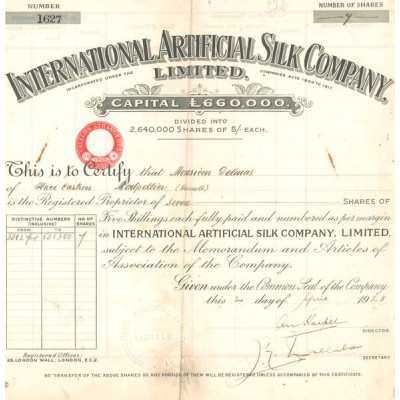 NUMBER
1627
NUMBER OF SHARES
7
INTERNATIONAL ARTIFICIAL SILK COMPANY,
LIMITED.
INCORPORATED UNDER THE COMPANIES ACTS 1908 TO 1917.
CAPITAL £660,000.
DIVIDED INTO
2,640,000 SHARES OF 5/- EACH.
This is to Certify that Monsieur Delmas
of Place Castries Montpellier (Herault)
is the Registered Proprietor of seven SHARES OF
DISTINCTIVE NUMBERS (INCLUSIVE) NO. OF SHARES
FROM TO
7
Five Shillings each fully paid and numbered as per margin
in INTERNATIONAL ARTIFICIAL SILK COMPANY, LIMITED,
subject to the Memorandum and Articles of
Association of the Company.
Given under the Common Seal of the Company
this day of April 192
DIRECTOR
SECRETARY
Registered Offices:
65, LONDON WALL, LONDON, E.C.2.
NO TRANSFER OF THE ABOVE SHARES OR ANY PORTION OF THEM WILL BE REGISTERED UNLESS ACCOMPANIED BY THIS CERTIFICATE.